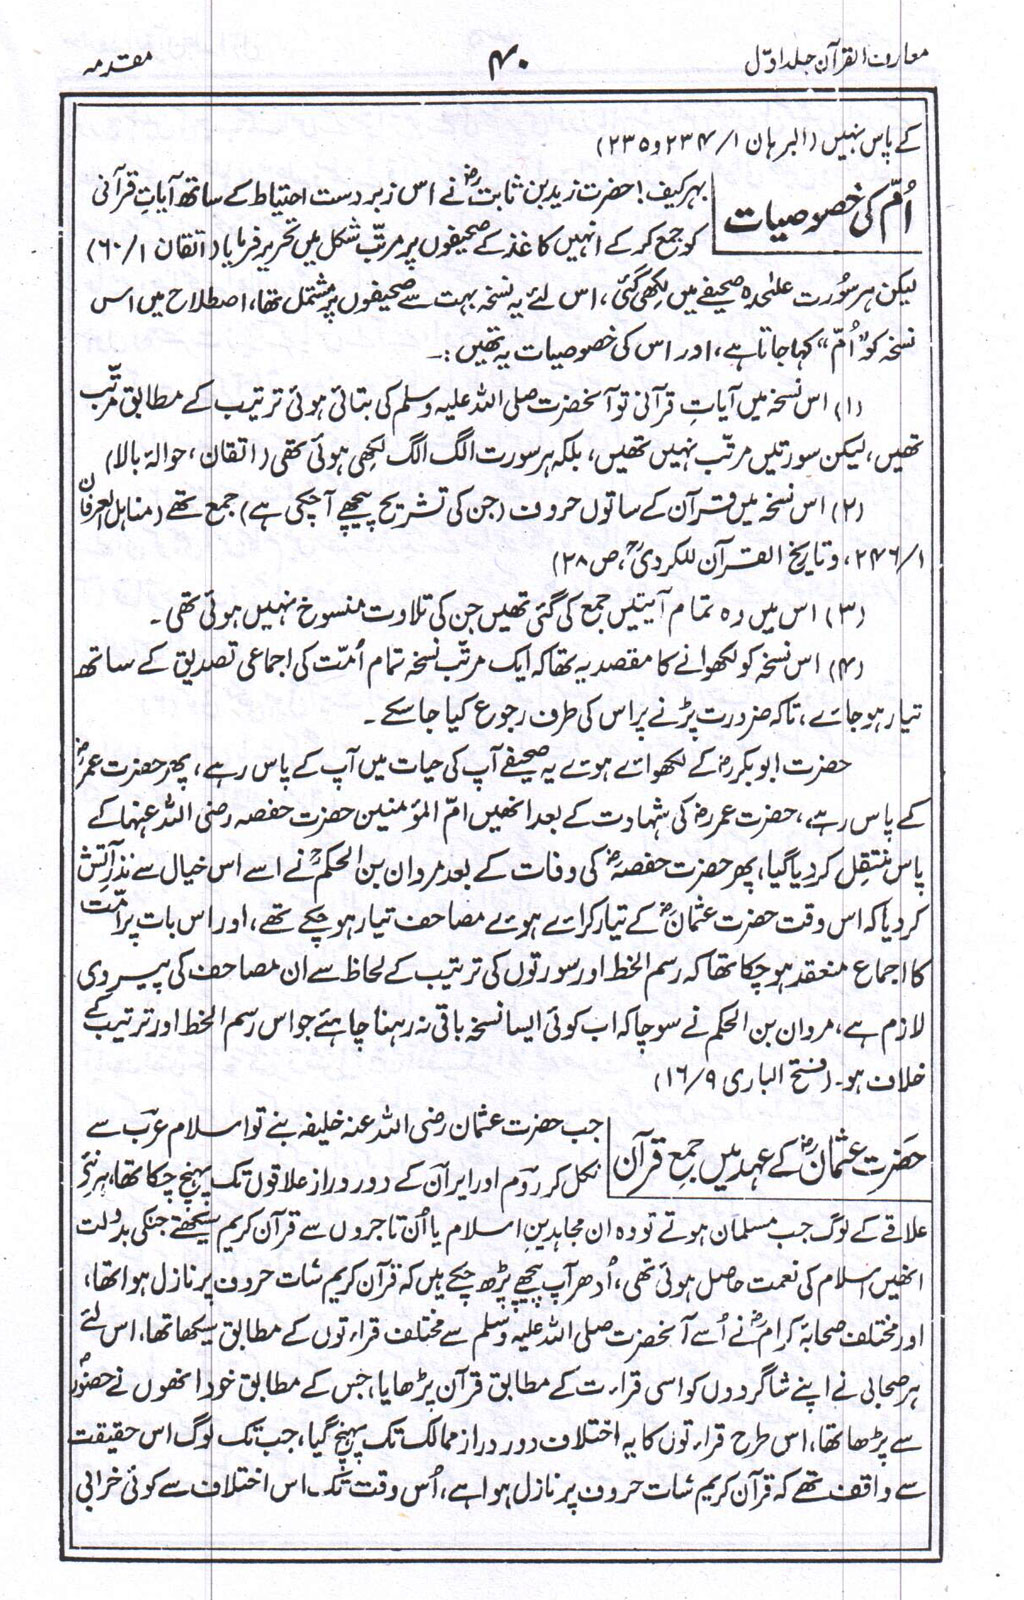 معارف القرآن جلد اوّل
۴۰
مقدمہ
کے پاس نہیں (البرہان ۱/۲۳۴ و ۲۳۵)
اُمّ کی خصوصیات
بہرکیف! حضرت زید بن ثابتؓ نے اس زبردست احتیاط کے ساتھ آیاتِ قرآنی
کو جمع کرکے انہیں کاغذ کے صحیفوں پر مرتّب شکل میں تحریر فرمایا (اتقان ۱/۶۰)
لیکن ہر سُورت علیٰحدہ صحیفے میں لکھی گئی، اس لئے یہ نسخہ بہت سے صحیفوں پر مشتمل تھا، اصطلاح میں اس
نسخہ کو ”اُمّ“ کہا جاتا ہے، اور اس کی خصوصیات یہ تھیں :۔
(۱) اس نسخہ میں آیاتِ قرآنی تو آنحضرت صلی اللہ علیہ وسلم کی بتائی ہوئی ترتیب کے مطابق مرتّب
تھیں، لیکن سورتیں مرتّب نہیں تھیں، بلکہ ہر سورت الگ الگ لکھی ہوئی تھی (اتقان، حوالۂ بالا)
(۲) اس نسخہ میں قرآن کے ساتوں حروف (جن کی تشریح پیچھے آچکی ہے) جمع تھے (مناہل العرفان
۱/۲۴۶، و تاریخ القرآن للکردیؒ، ص ۲۸)
(۳) اس میں وہ تمام آیتیں جمع کی گئی تھیں جن کی تلاوت منسوخ نہیں ہوئی تھی۔
(۴) اس نسخہ کو لکھوانے کا مقصد یہ تھا کہ ایک مرتّب نسخہ تمام اُمّت کی اجماعی تصدیق کے ساتھ
تیار ہوجائے، تاکہ ضرورت پڑنے پر اس کی طرف رجوع کیا جاسکے۔
حضرت ابوبکرؓ کے لکھوائے ہوئے یہ صحیفے آپ کی حیات میں آپ کے پاس رہے، پھر حضرت عمرؓ
کے پاس رہے، حضرت عمرؓ کی شہادت کے بعد انھیں امّ المؤمنین حضرت حفصہ رضی اللہ عنہا کے
پاس منتقل کردیا گیا، پھر حضرت حفصہؓ کی وفات کے بعد مروان بن الحکمؒ نے اسے اس خیال سے نذرِ آتش
کردیا کہ اس وقت حضرت عثمانؓ کے تیار کرائے ہوئے مصاحف تیار ہوچکے تھے، اور اس بات پر امّت
کا اجماع منعقد ہوچکا تھا کہ رسم الخط اور سورتوں کی ترتیب کے لحاظ سے ان مصاحف کی پیروی
لازم ہے، مروان بن الحکم نے سوچا کہ اب کوئی ایسا نسخہ باقی نہ رہنا چاہئے جو اس رسم الخط اور ترتیب کے
خلاف ہو۔ (فتح الباری ۹/۱۶)
حضرت عثمانؓ کے عہد میں جمعِ قرآن
جب حضرت عثمان رضی اللہ عنہ خلیفہ بنے تو اسلام عرب سے
نکل کر روم اور ایران کے دور دراز علاقوں تک پہنچ چکا تھا، ہر نئے
علاقے کے لوگ جب مسلمان ہوتے تو وہ ان مجاہدینِ اسلام یا اُن تاجروں سے قرآن کریم سیکھتے جنکی بدولت
انھیں اسلام کی نعمت حاصل ہوئی تھی، اُدھر آپ پیچھے پڑھ چکے ہیں کہ قرآن کریم سات حروف پر نازل ہوا تھا،
اور مختلف صحابۂ کرامؓ نے اُسے آنحضرت صلی اللہ علیہ وسلم سے مختلف قراءتوں کے مطابق سیکھا تھا، اس لئے
ہر صحابی نے اپنے شاگردوں کو اسی قراءت کے مطابق قرآن پڑھایا، جس کے مطابق خود انھوں نے حضورؐ
سے پڑھا تھا، اس طرح قراءتوں کا یہ اختلاف دور دراز ممالک تک پہنچ گیا، جب تک لوگ اس حقیقت
سے واقف تھے کہ قرآن کریم سات حروف پر نازل ہوا ہے، اُس وقت تک اس اختلاف سے کوئی خرابی